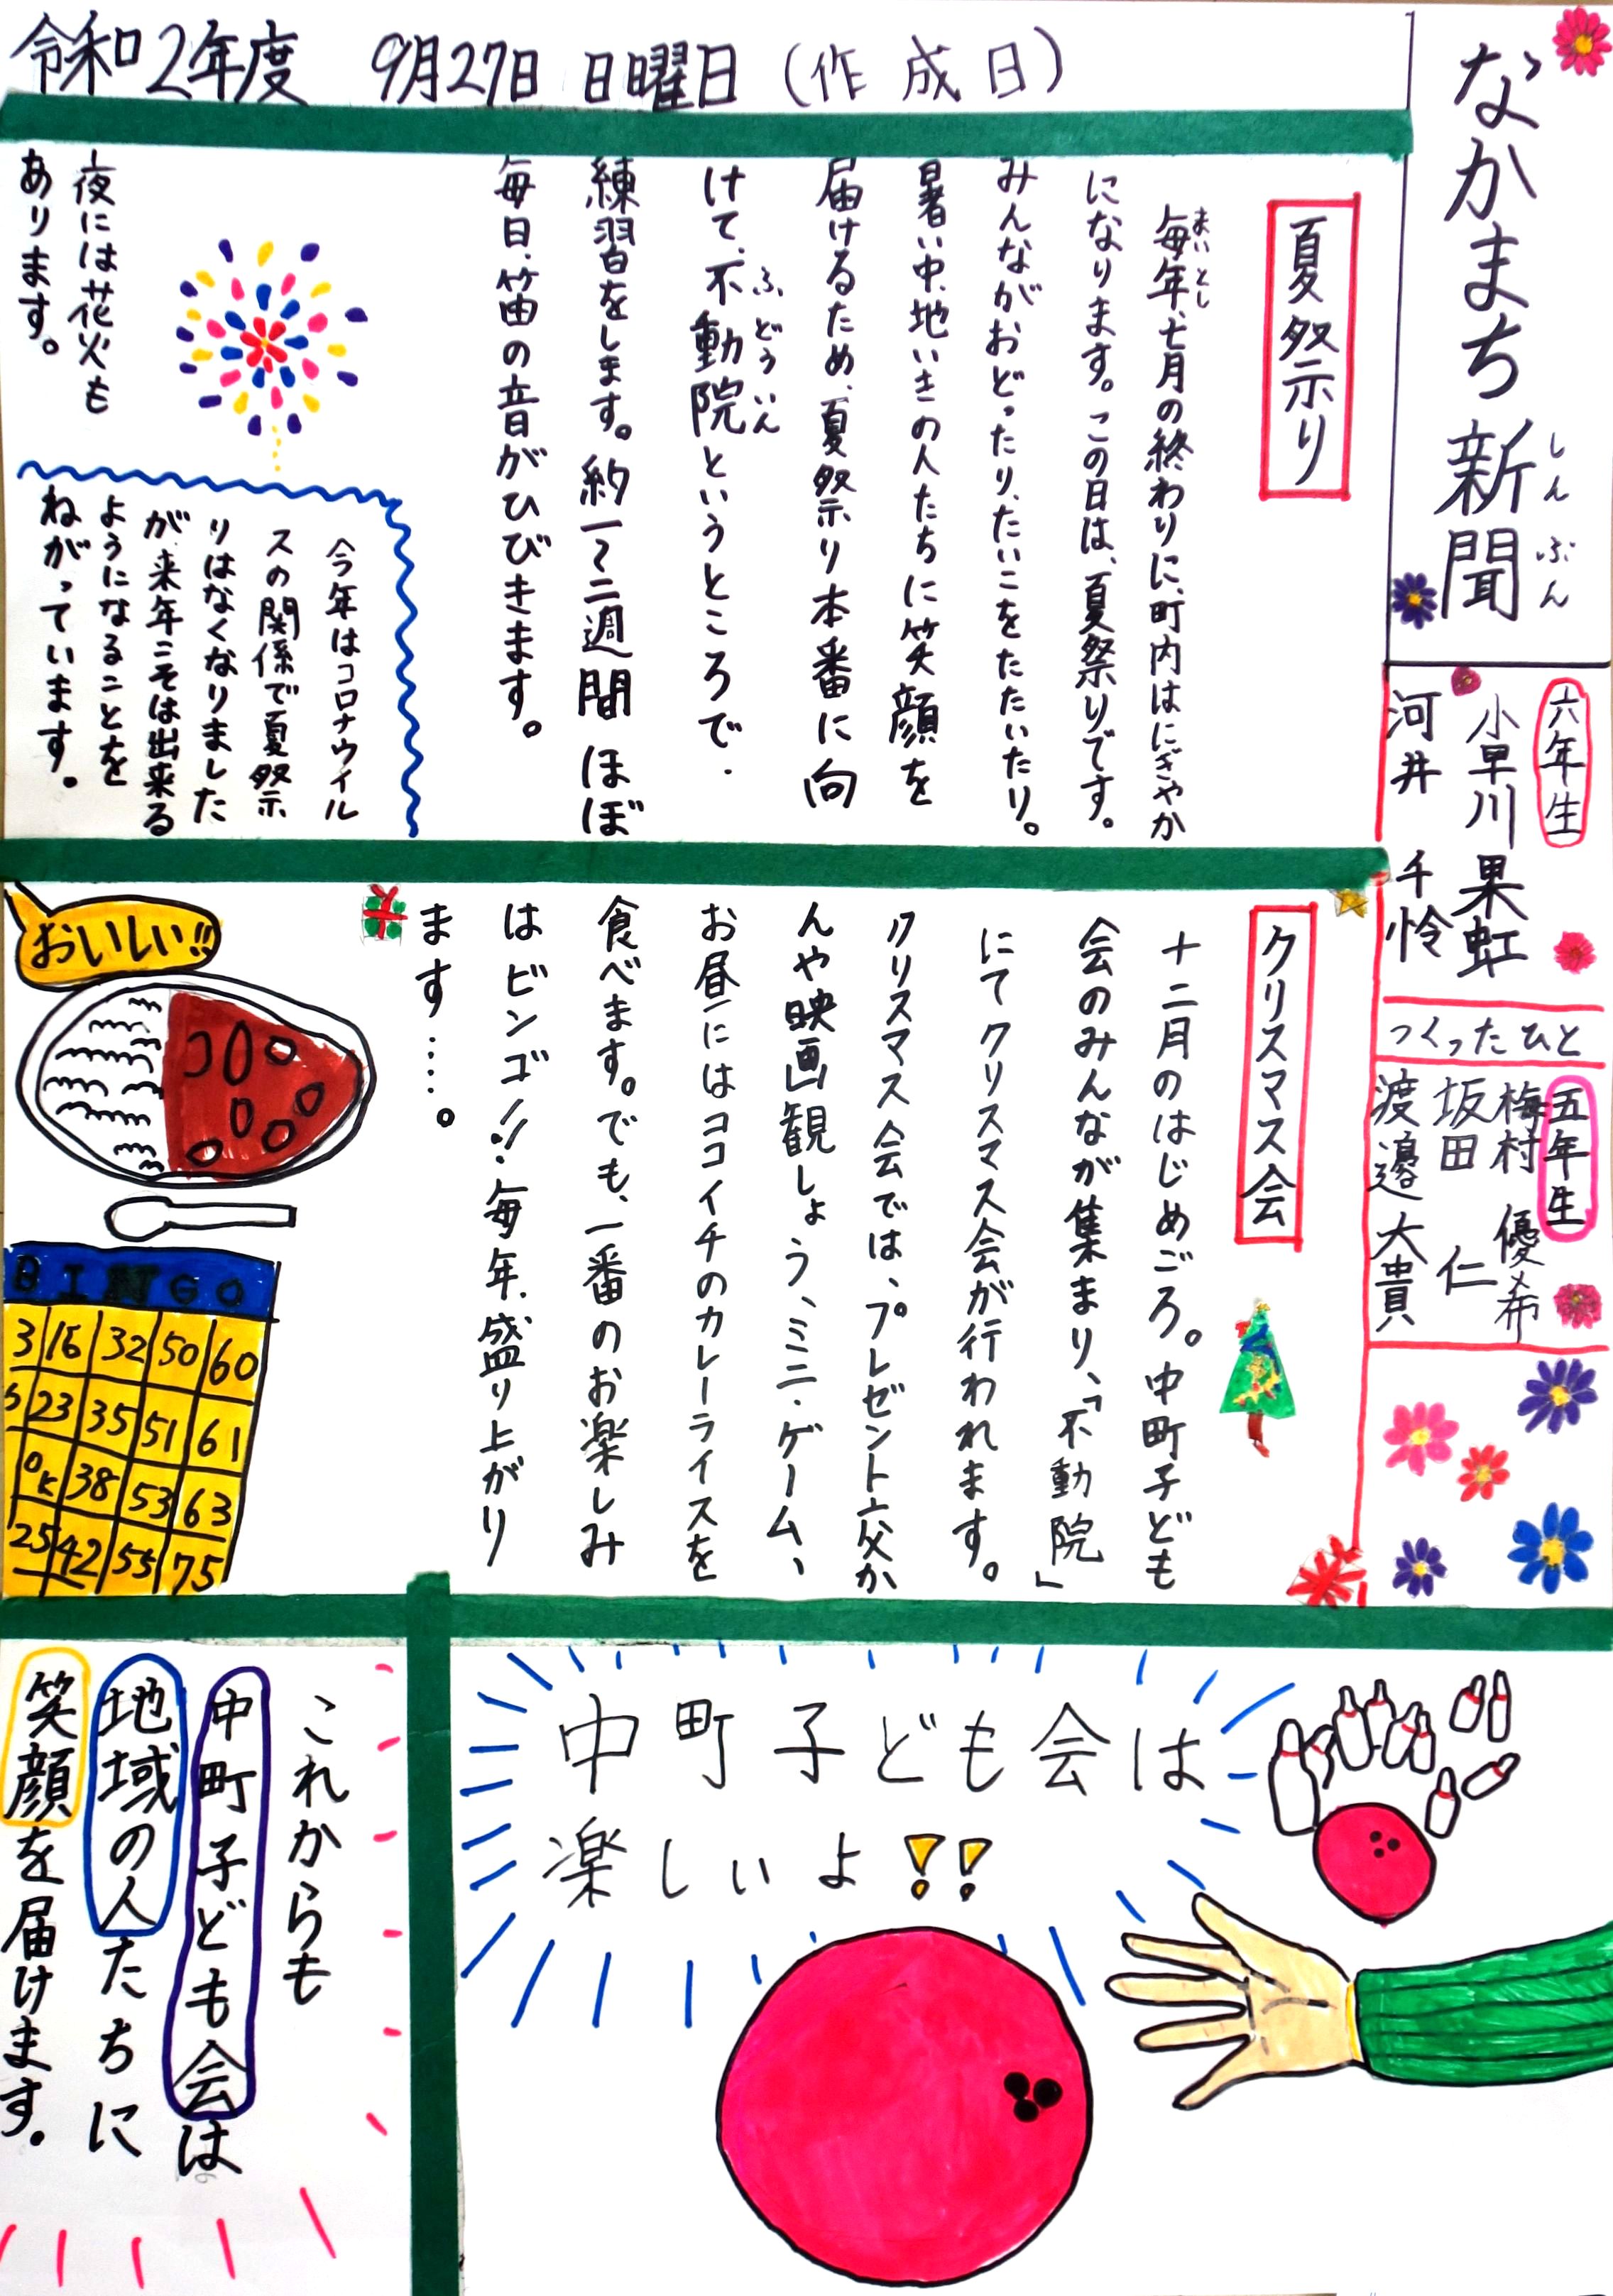 令和2年度 9月27日 日曜日 (作成日)
なかまち新聞
しんぶん
六年生
小早川果虹
河井 千怜
つくったひと
五年生
梅村 優希
坂田 仁
渡邉 大貴
夏祭り
毎年、七月の終わりに、町内はにぎやか
まいとし
になります。この日は、夏祭りです。
みんながおどったり、たいこをたたいたり。
暑い中、地いきの人たちに笑顔を
届けるため、夏祭り本番に向
けて、不動院というところで、
ふどういん
練習をします。約一〜二週間ほぼ
毎日、笛の音がひびきます。
夜には花火も
あります。
今年はコロナウイル
スの関係で夏祭
りはなくなりました
が、来年こそは出来る
ようになることを
ねがっています。
クリスマス会
十二月のはじめごろ。中町子ども
会のみんなが集まり、「不動院」
にてクリスマス会が行われます。
クリスマス会では、プレゼント交か
んや映画観しょう、ミニ・ゲーム、
お昼にはココイチのカレーライスを
食べます。でも、一番のお楽しみ
はビンゴ!!毎年、盛り上がり
ます……。
おいしい!!
BINGO
3 16 32 50 60
5 23 35 51 61
38 53 63
25 42 55 75
中町子ども会は
楽しいよ!!
これからも
中町子ども会は
地域の人たちに
笑顔を届けます。